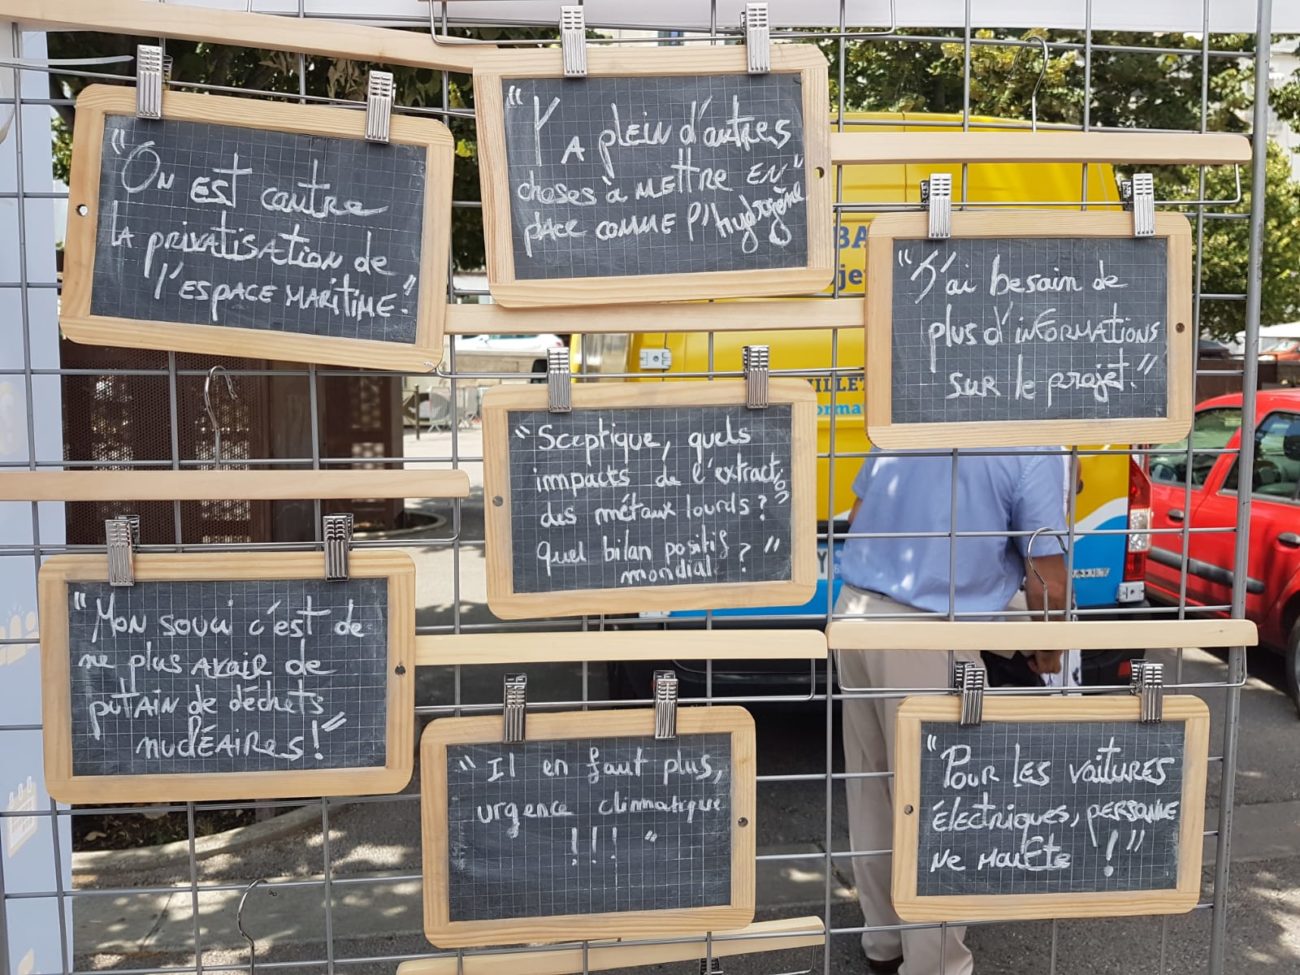 "On est contre
la privatisation de
l'espace maritime."
"Y a plein d'autres
choses à mettre en"
place comme l'hydrogène
"J'ai besoin de
plus d'informations
sur le projet."
"Sceptique, quels
impacts de l'extract°
des métaux lourds ?
quel bilan positif
mondial ? "
"Mon souci c'est de
ne plus avoir de
putain de déchets
nucléaires !"
"Il en faut plus,
urgence climmatique
!!! "
"Pour les voitures
électriques, personne
ne manifeste !"
BA
ILLET